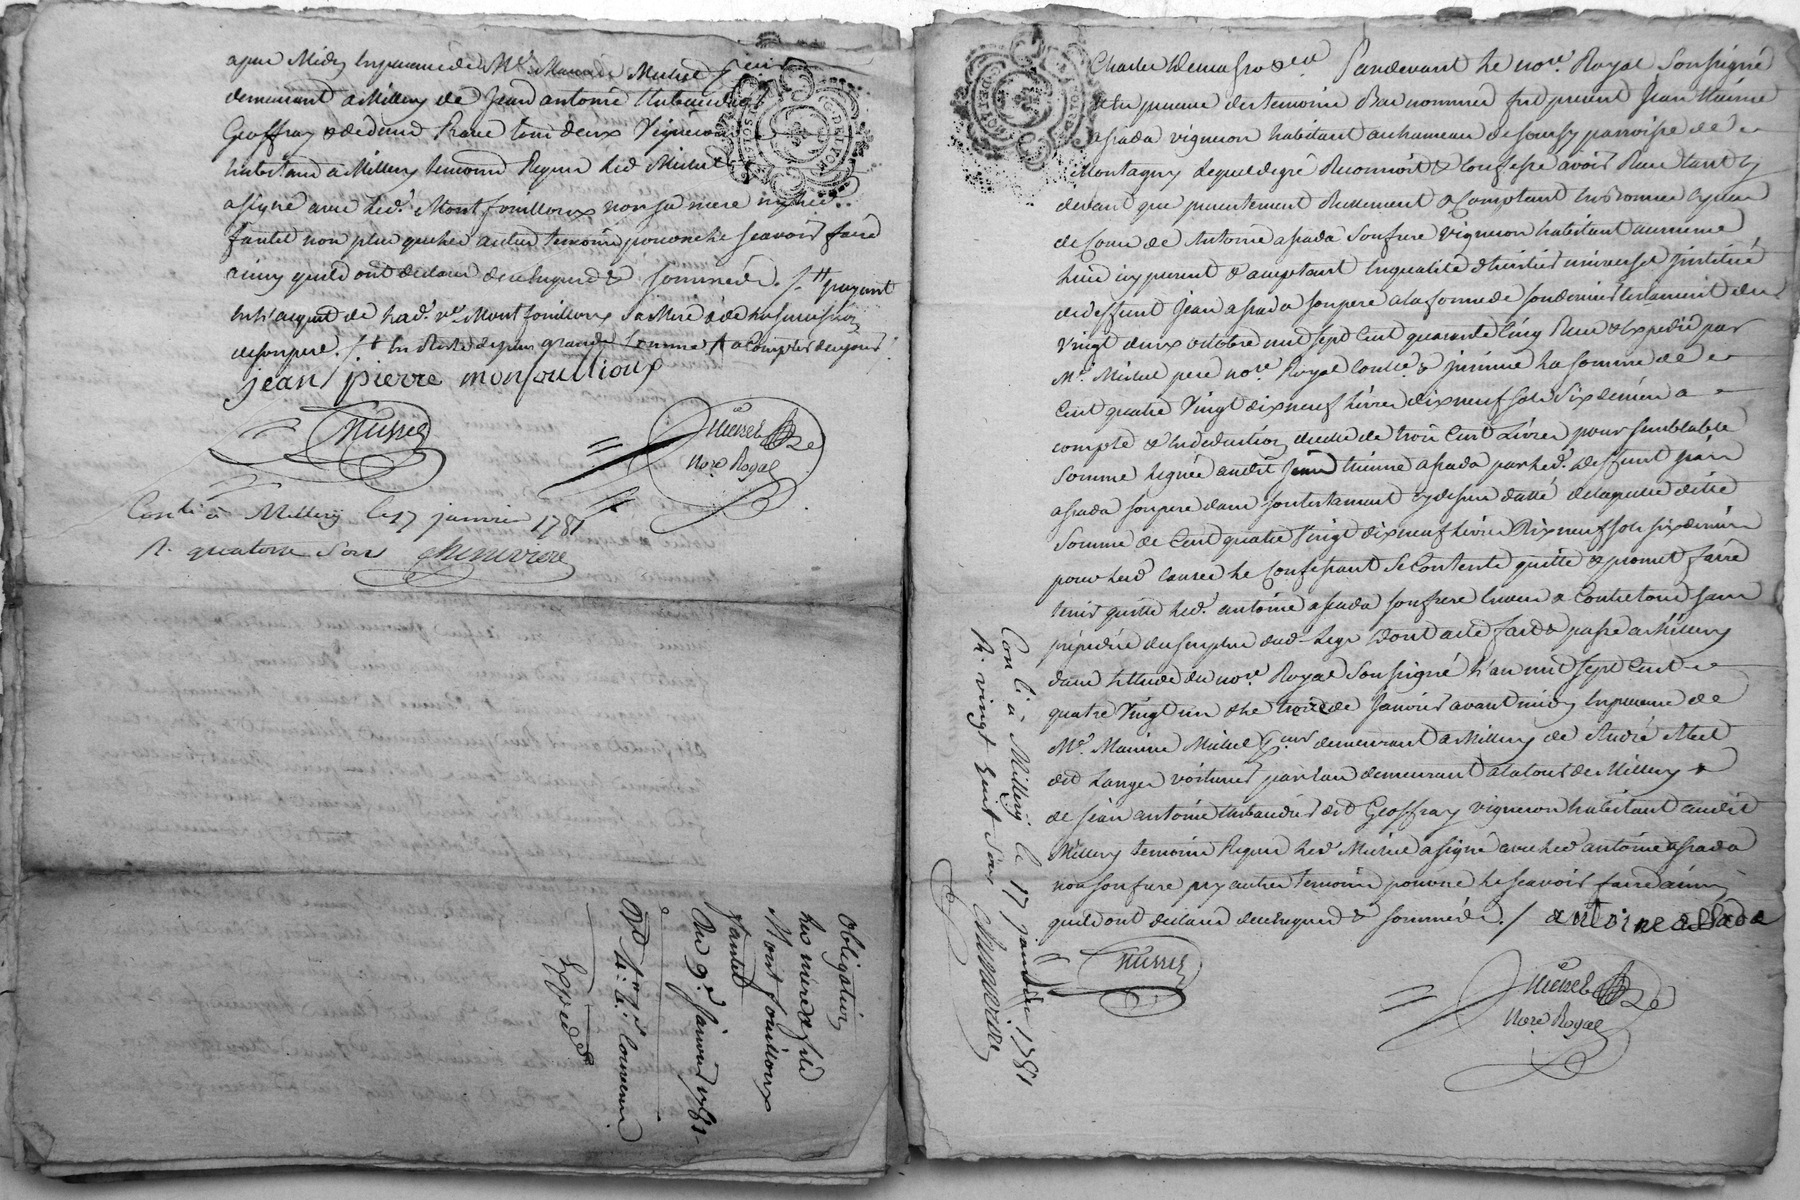 apres Midy En presence de Me Maurice Michel
demeurant a Millery de Jean antoine Thibaudier dit
Geoffray & de tous deux Vignerons
habitans a Millery temoins Requis led Michel
a signé avec led. Montfouilloux non sa mere ny led.
fautel non plus que les autres temoins pour ne le scavoir faire
ainsy quils ont declaré de ce Enquis & sommés ./. payant
en l'acquit de lad. ve Montfouilloux sa Mere & de la succession
de son pere ./. a Compter de ce jour
jean pierre monfouillioux
Mussel
Michel
Nore Royal
Conlé à Millery le 17 janvier 1781
R. quatorze Sous
Obligation
les mere & fils
Montfouilloux
a fautel
Du 9e Janvier 1781
Expied
Pardevant Le nore Royal Soussigné
& En presence des temoins Bas nommés fut present Jean
assada vigneron habitant au hameau de Sourzy parroisse de
Montagny Lequel de gré Reconnoit & Confesse avoir Receu tant cy
devant que presentement Reellement & Comptant En bonnes Especes
de Cours de Antoine assada Son frere vigneron habitant au meme
lieu icy present & acceptant En qualité d'heritier universel institué
de deffunt Jean assada son pere a la forme de son dernier testament du
Vingt deux octobre mil sept Cent quarante Cinq Receu & Expedié par
Me Michel pere nore Royal Controllé & insinué La somme de
Cent quatre Vingt dix neuf Livres dix neuf sols Six deniers a
compte & En deduction de celle de trois Cent Livres pour semblable
Somme Leguée audit Jean assada par led. deffunt jean
assada son pere dans son testament cy dessus datté de laquelle ditte
Somme de Cent quatre Vingt dix neuf Livres Dix neuf sols six deniers
pour led. Causes Le Confessant Se Contente quitte & promet faire
tenir quitte led. antoine assada son frere Envers & Contre tous sans
prejudice du surplus dud. Legs Dont acte fait & passé a Millery
dans L'Etude du nore Royal Soussigné L'an mil sept Cent
quatre Vingt un & le treize Janvier avant midy En presence de
Me Maurice Michel demeurant a Millery de André
dit Langer voiturier par Eau demeurant a la tour de Millery &
de Jean antoine Thibaudier dit Geoffray vigneron habitant audit
Millery temoins Requis led Michel a signé avec led antoine assada
non son frere ny autre temoin pour ne le scavoir faire ainsy
quils ont declaré de ce Enquis & sommés ./. antoine assada
Mussel
Michel
Nore Royal
Con lé à Millery le 17 janvier 1781
R. vingt huit Sous